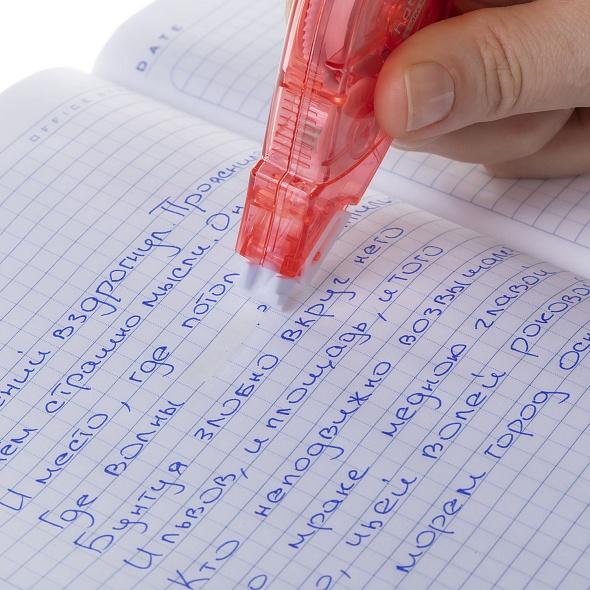 DATE
OFFICE
ений вздрогнул. Прояснил
ем страшно мысли. Он
И место, где потоп
Где волны
Бунтуя злобно вкруг него
И львов, и площадь, и того
Кто неподвижно возвышал
о мраке медною главой
о, чьей волей роково
морем город осн